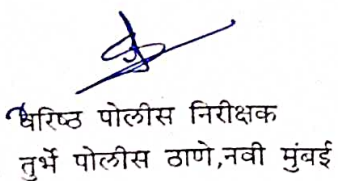 वरिष्ठ पोलीस निरीक्षक
तुर्भे पोलीस ठाणे,नवी मुंबई